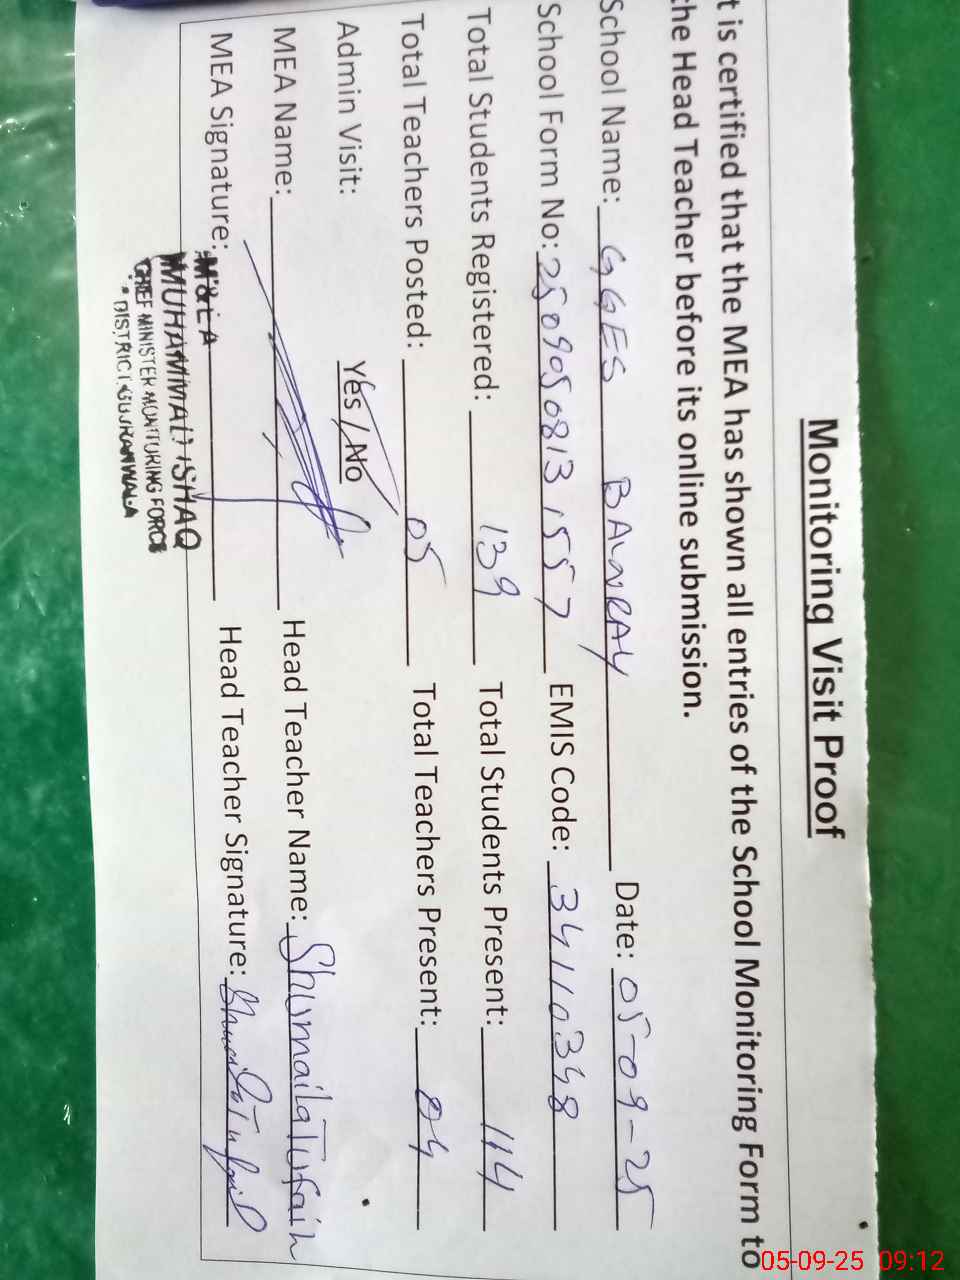 Monitoring Visit Proof
t is certified that the MEA has shown all entries of the School Monitoring Form to
the Head Teacher before its online submission.
School Name: GGES Date: 05-09-25
School Form No: 250905 0813 1557 EMIS Code: 34110348
Total Students Registered: 139 Total Students Present: 114
Total Teachers Posted: 05 Total Teachers Present: 04
Admin Visit: Yes / No
MEA Name: Head Teacher Name: Shumaila Tufail
MEA Signature: Head Teacher Signature: Shumaila Tufail
M&EA
MUHAMMAD ISHAQ
CHIEF MINISTER MONITORING FORCE
DISTRICT GUJRANWALA
05-09-25 09:12